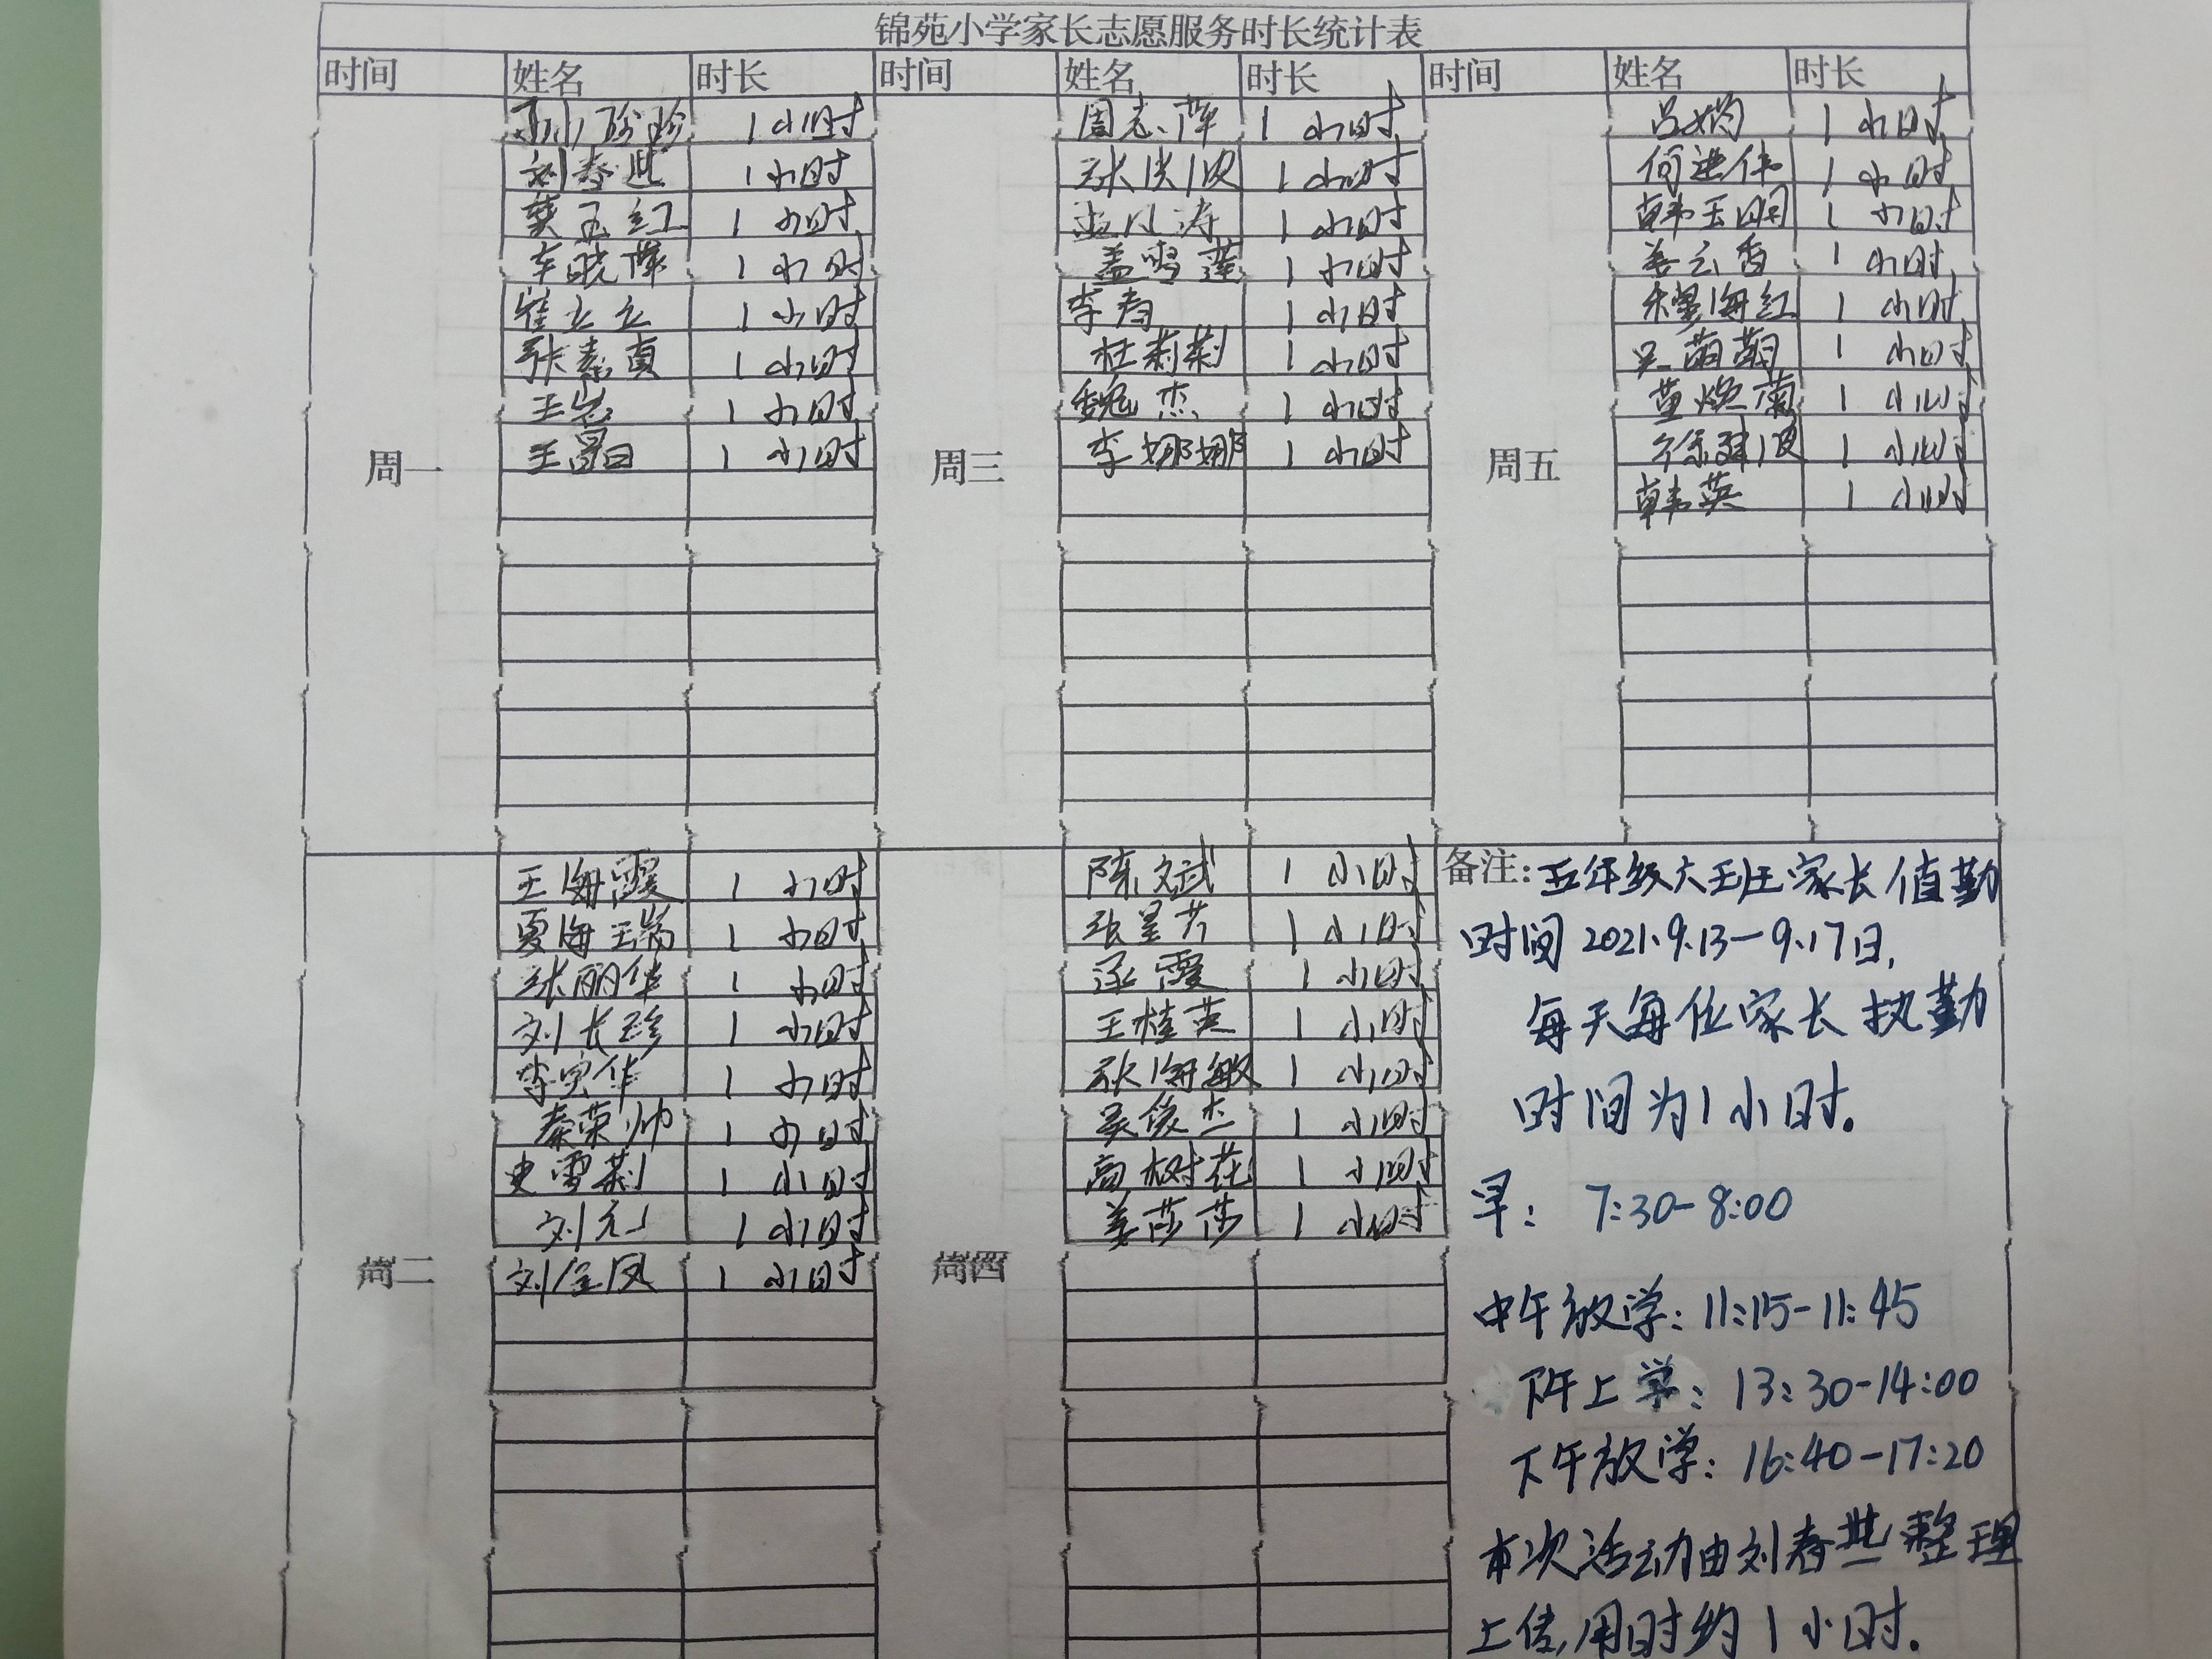 锦苑小学家长志愿服务时长统计表
时间 姓名 时长 时间 姓名 时长 时间 姓名 时长
周一
孙珍珍 1小时
刘春燕 1小时
樊玉红 1小时
车晓萍 1小时
崔立立 1小时
张素真 1小时
王岩 1小时
王晶 1小时
周三
周志萍 1小时
张洪波 1小时
孟小涛 1小时
盖雪莲 1小时
李春 1小时
杜莉莉 1小时
魏杰 1小时
李娜娜 1小时
周五
吕娟 1小时
何进伟 1小时
韩玉明 1小时
姜云香 1小时
海红 1小时
吴萌萌 1小时
董焕菊 1小时
徐翠波 1小时
韩英 1小时
周二
王海霞 1小时
夏海瑞 1小时
张丽华 1小时
刘长珍 1小时
李实华 1小时
秦荣帅 1小时
史雪莉 1小时
刘元 1小时
刘金凤 1小时
周四
陈文斌 1小时
张呈芹 1小时
霞 1小时
王桂英 1小时
张海敏 1小时
吴俊杰 1小时
高树花 1小时
姜莎莎 1小时
备注:五年级六班家长值勤
时间2021.9.13-9.17日,
每天每位家长执勤
时间为1小时.
早: 7:30-8:00
中午放学: 11:15-11:45
下午上学: 13:30-14:00
下午放学: 16:40-17:20
本次活动由刘春燕整理
上传,用时约1小时.